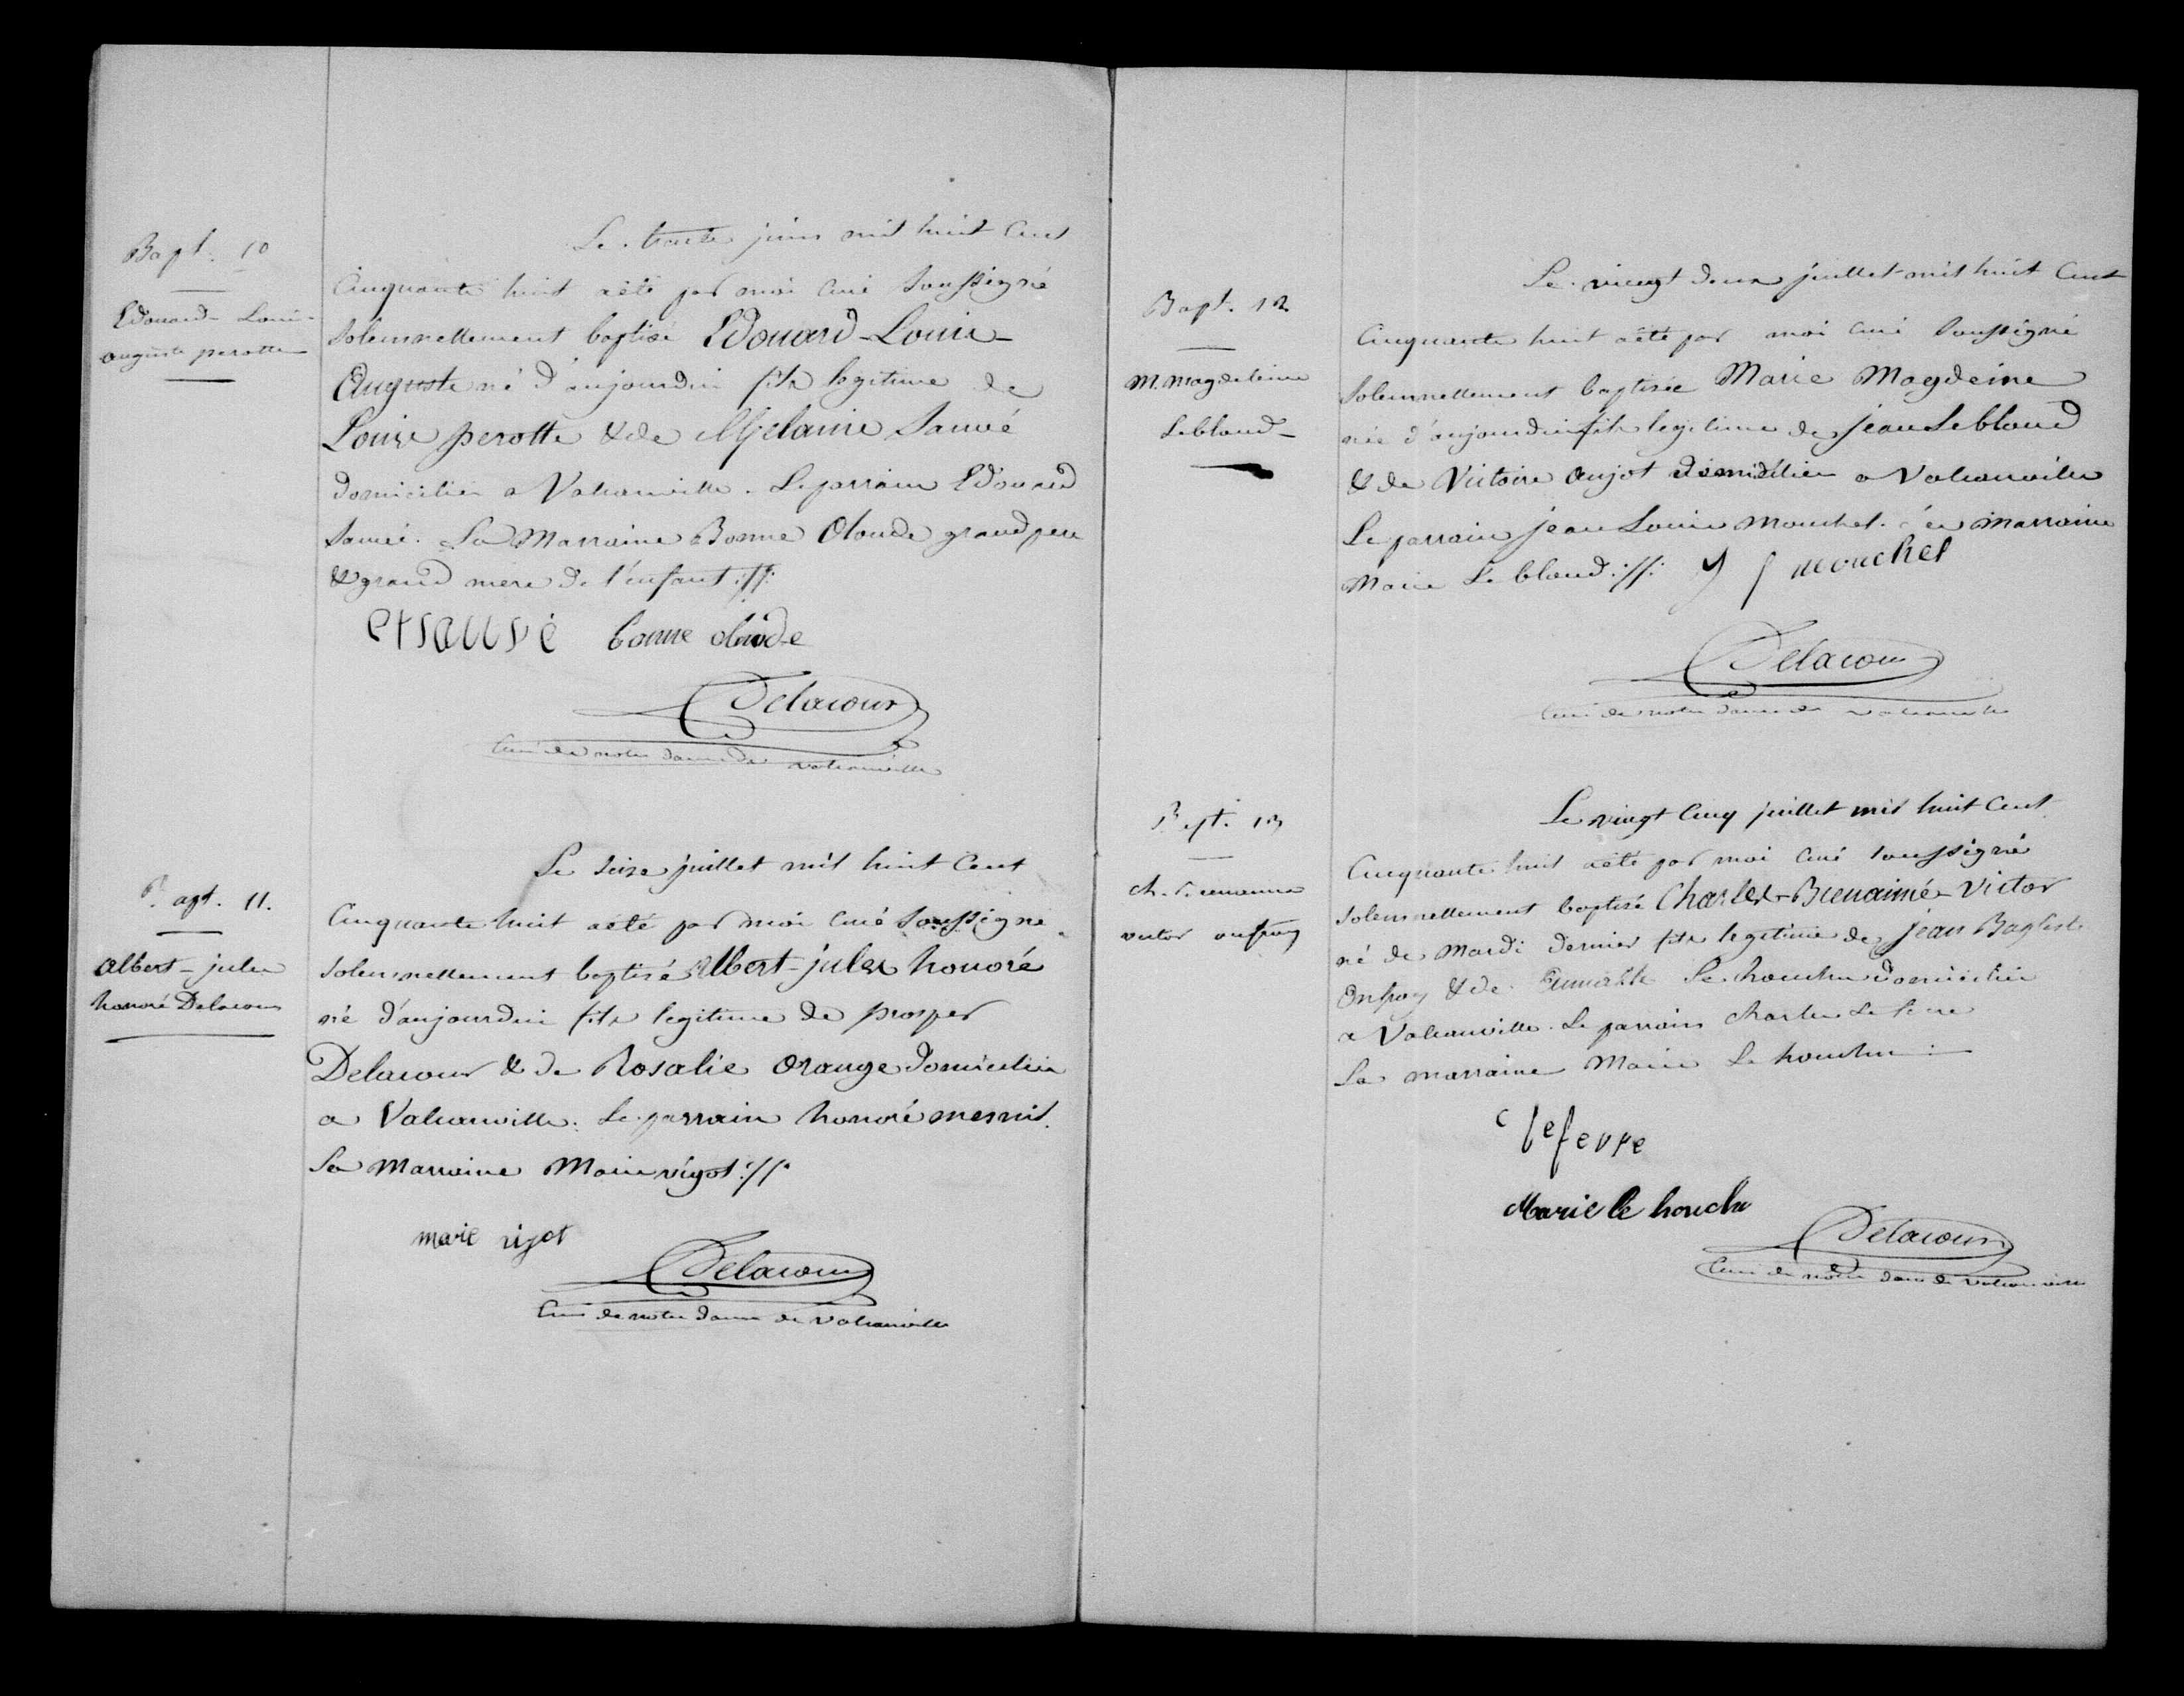 Bapt. 10
Edouard - Louis
auguste perotte
Le trente juin mil huit cent
cinquante huit a été par moi curé soussigné
solennellement baptisé Edouard - Louis -
Auguste né d'aujourdui fils legitime de
Louis perotte & de Melanie Sauvé
domiciliés a Valcanville. Le parrain Edouard
Sauvé. La Marraine Bonne Oloude grand pere
& grand mere de l'enfant ://:
et sauvé bonne oloude
Delacour
Curé de notre dame de valcanville
Bapt. 11.
albert - jules
honoré Delacour
Le seize juillet mil huit cent
cinquante huit a été par moi curé soussigné
solennellement baptisé Albert - jules honoré
né d'aujourdui fils legitime de prosper
Delacour & de Rosalie orange domiciliés
a Valcanville. Le parrain honoré mesnil.
La Marraine Marie vigot ://:
marie vigot
Delacour
Curé de notre dame de valcanville
Bapt. 12
M. Magdeleine
Leblond
Le vingt deux juillet mil huit cent
cinquante huit a été par moi curé soussigné
solennellement baptisée Marie Magdeine
née d'aujourdui fils legitime de jean Leblond
& de Victoire anjot domiciliés a valcanville
Le parrain jean Louis mouchel. La marraine
Marie Le blond ://: J J mouchel
Delacour
Curé de notre dame de valcanville
Bapt. 13
ch. Bienaimé
victor onfroy
Le vingt cinq juillet mil huit cent
cinquante huit a été par moi curé soussigné
solennellement baptisé Charles - Bienaimé - Victor
né de mardi dernier fils legitime de jean Baptiste
Onfroy & de Le houchu domiciliés
a Valcanville. Le parrain charles Lefevre
La marraine Marie Le houchu :
c lefevre
Marie le houchu
Delacour
Curé de notre dame de valcanville